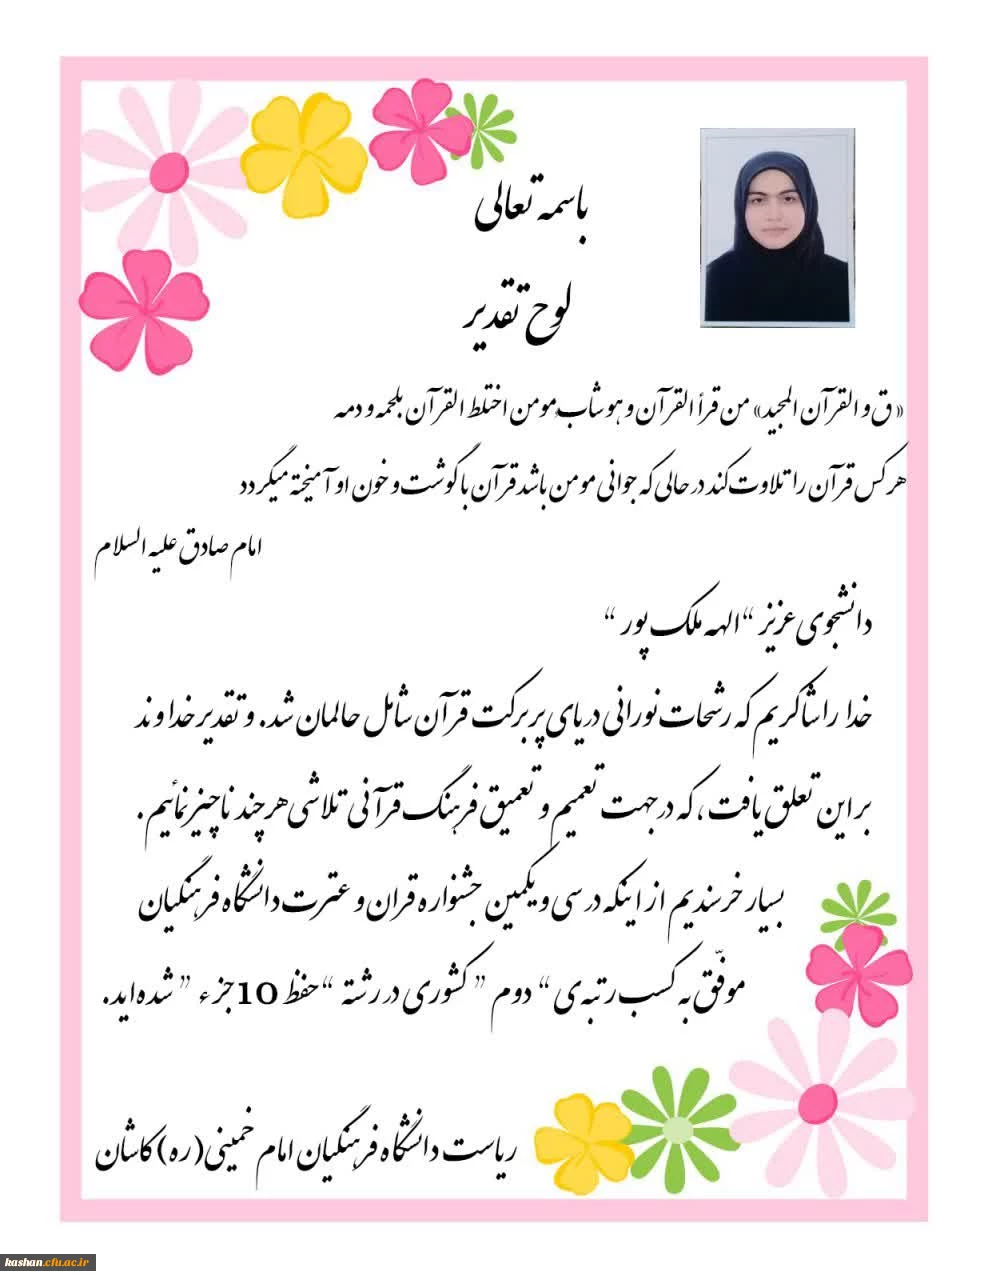 باسمه تعالی
لوح تقدیر
«ق و القرآن المجید» من قرأ القرآن و هو شاب مومن اختلط القرآن بلحمه و دمه
هر کس قرآن را تلاوت کند در حالی که جوانی مومن باشد قرآن با گوشت و خون او آمیخته میگردد
امام صادق علیه السلام
دانشجوی عزیز “الهه ملک پور “
خدا را شاکریم که رشحات نورانی دریای پر برکت قرآن شامل حالمان شد. و تقدیر خداوند
بر این تعلق یافت ، که در جهت تعمیم و تعمیق فرهنگ قرآنی تلاشی هر چند ناچیز نمائیم .
بسیار خرسندیم از اینکه در سی و یکمین جشنواره قران و عترت دانشگاه فرهنگیان
موفّق به کسب رتبه ی “ دوم ” کشوری در رشته “حفظ 10 جزء ” شده اید.
ریاست دانشگاه فرهنگیان امام خمینی(ره) کاشان
kashan.cfu.ac.ir